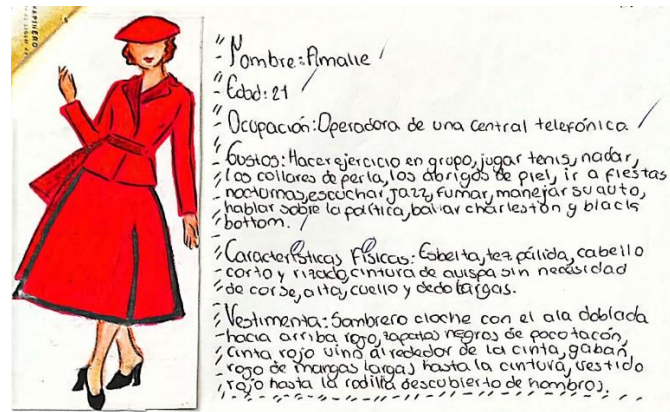 CHAPINERO
Nombre: Amalie
Edad: 21
Ocupación: Operadora de una central telefónica.
Gustos: Hacer ejercicio en grupo, jugar tenis, nadar,
los collares de perla, los abrigos de piel, ir a fiestas
nocturnas, escuchar jazz, fumar, manejar su auto,
hablar sobre la política, bailar charleston y black
bottom.
Características Físicas: Esbelta, tez pálida, cabello
corto y rizado, cintura de avispa sin necesidad
de corse, alta, cuello y dedo largas.
Vestimenta: Sombrero cloche con el ala doblada
hacia arriba rojo, zapatos negros de poco tacón,
cinta rojo vino alrededor de la cinta, gabán
rojo de mangas largas hasta la cintura, vestido
rojo hasta la rodilla descubierto de hombros.